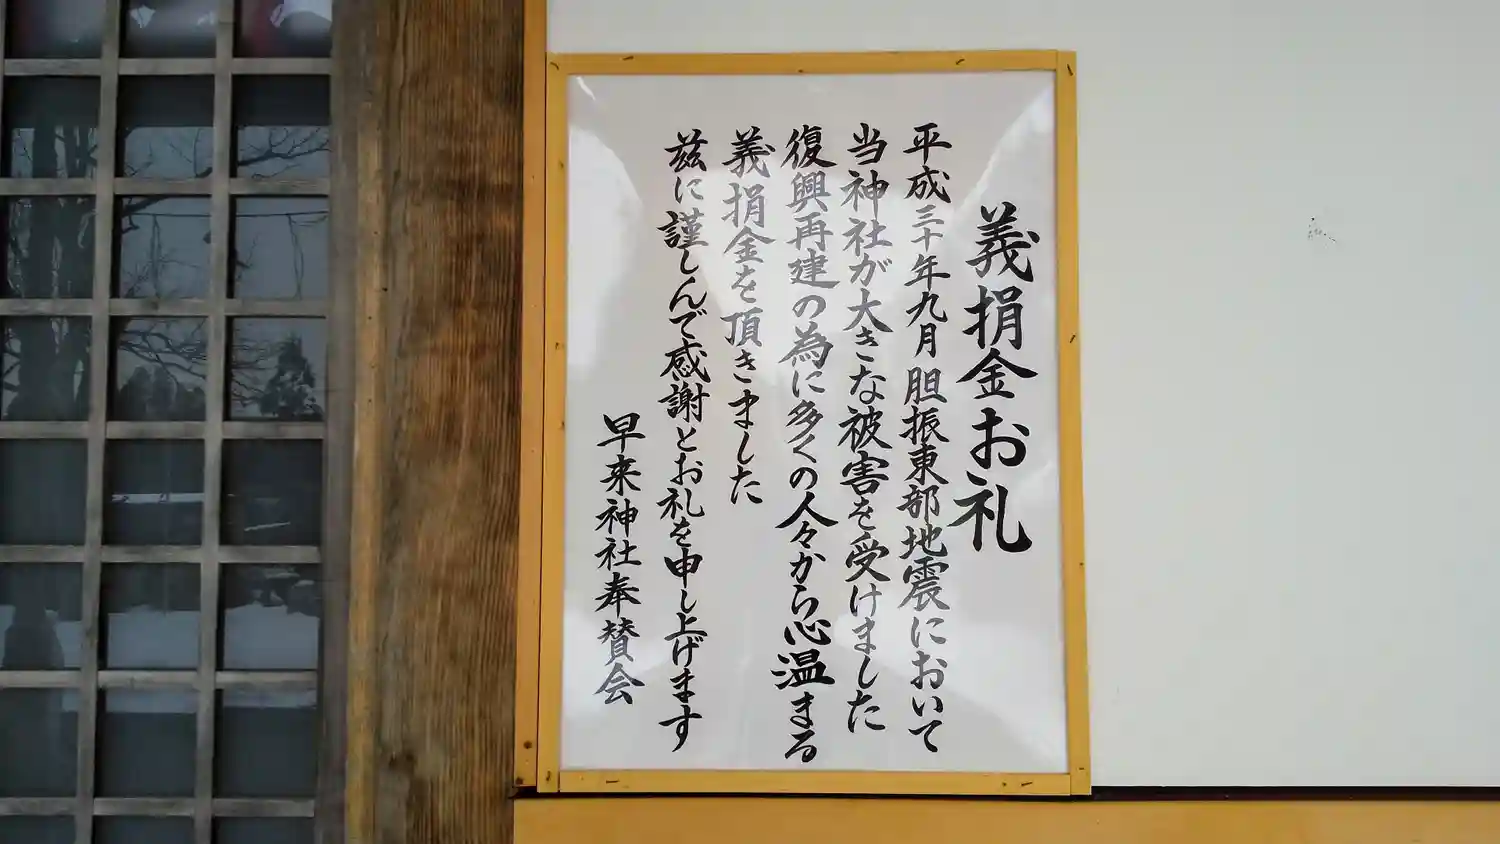 義捐金お礼
平成三十年九月胆振東部地震において
当神社が大きな被害を受けました
復興再建の為に多くの人々から心温まる
義捐金を頂きました
茲に謹しんで感謝とお礼を申し上げます
早来神社奉賛会